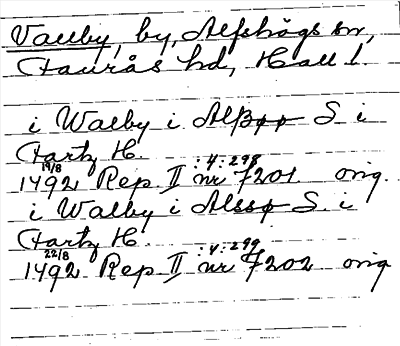 Vallby, by, Alfshögs sn,
Faurås hd, Hall l.
i Walby i Alßøø S. i
Fartz H.
19/8 :4:298
1492 Rep. II nr 7201 orig.
i Walby i Alssø S. i
Fartz H.
22/8 :4:299
1492 Rep. II nr 7202 orig